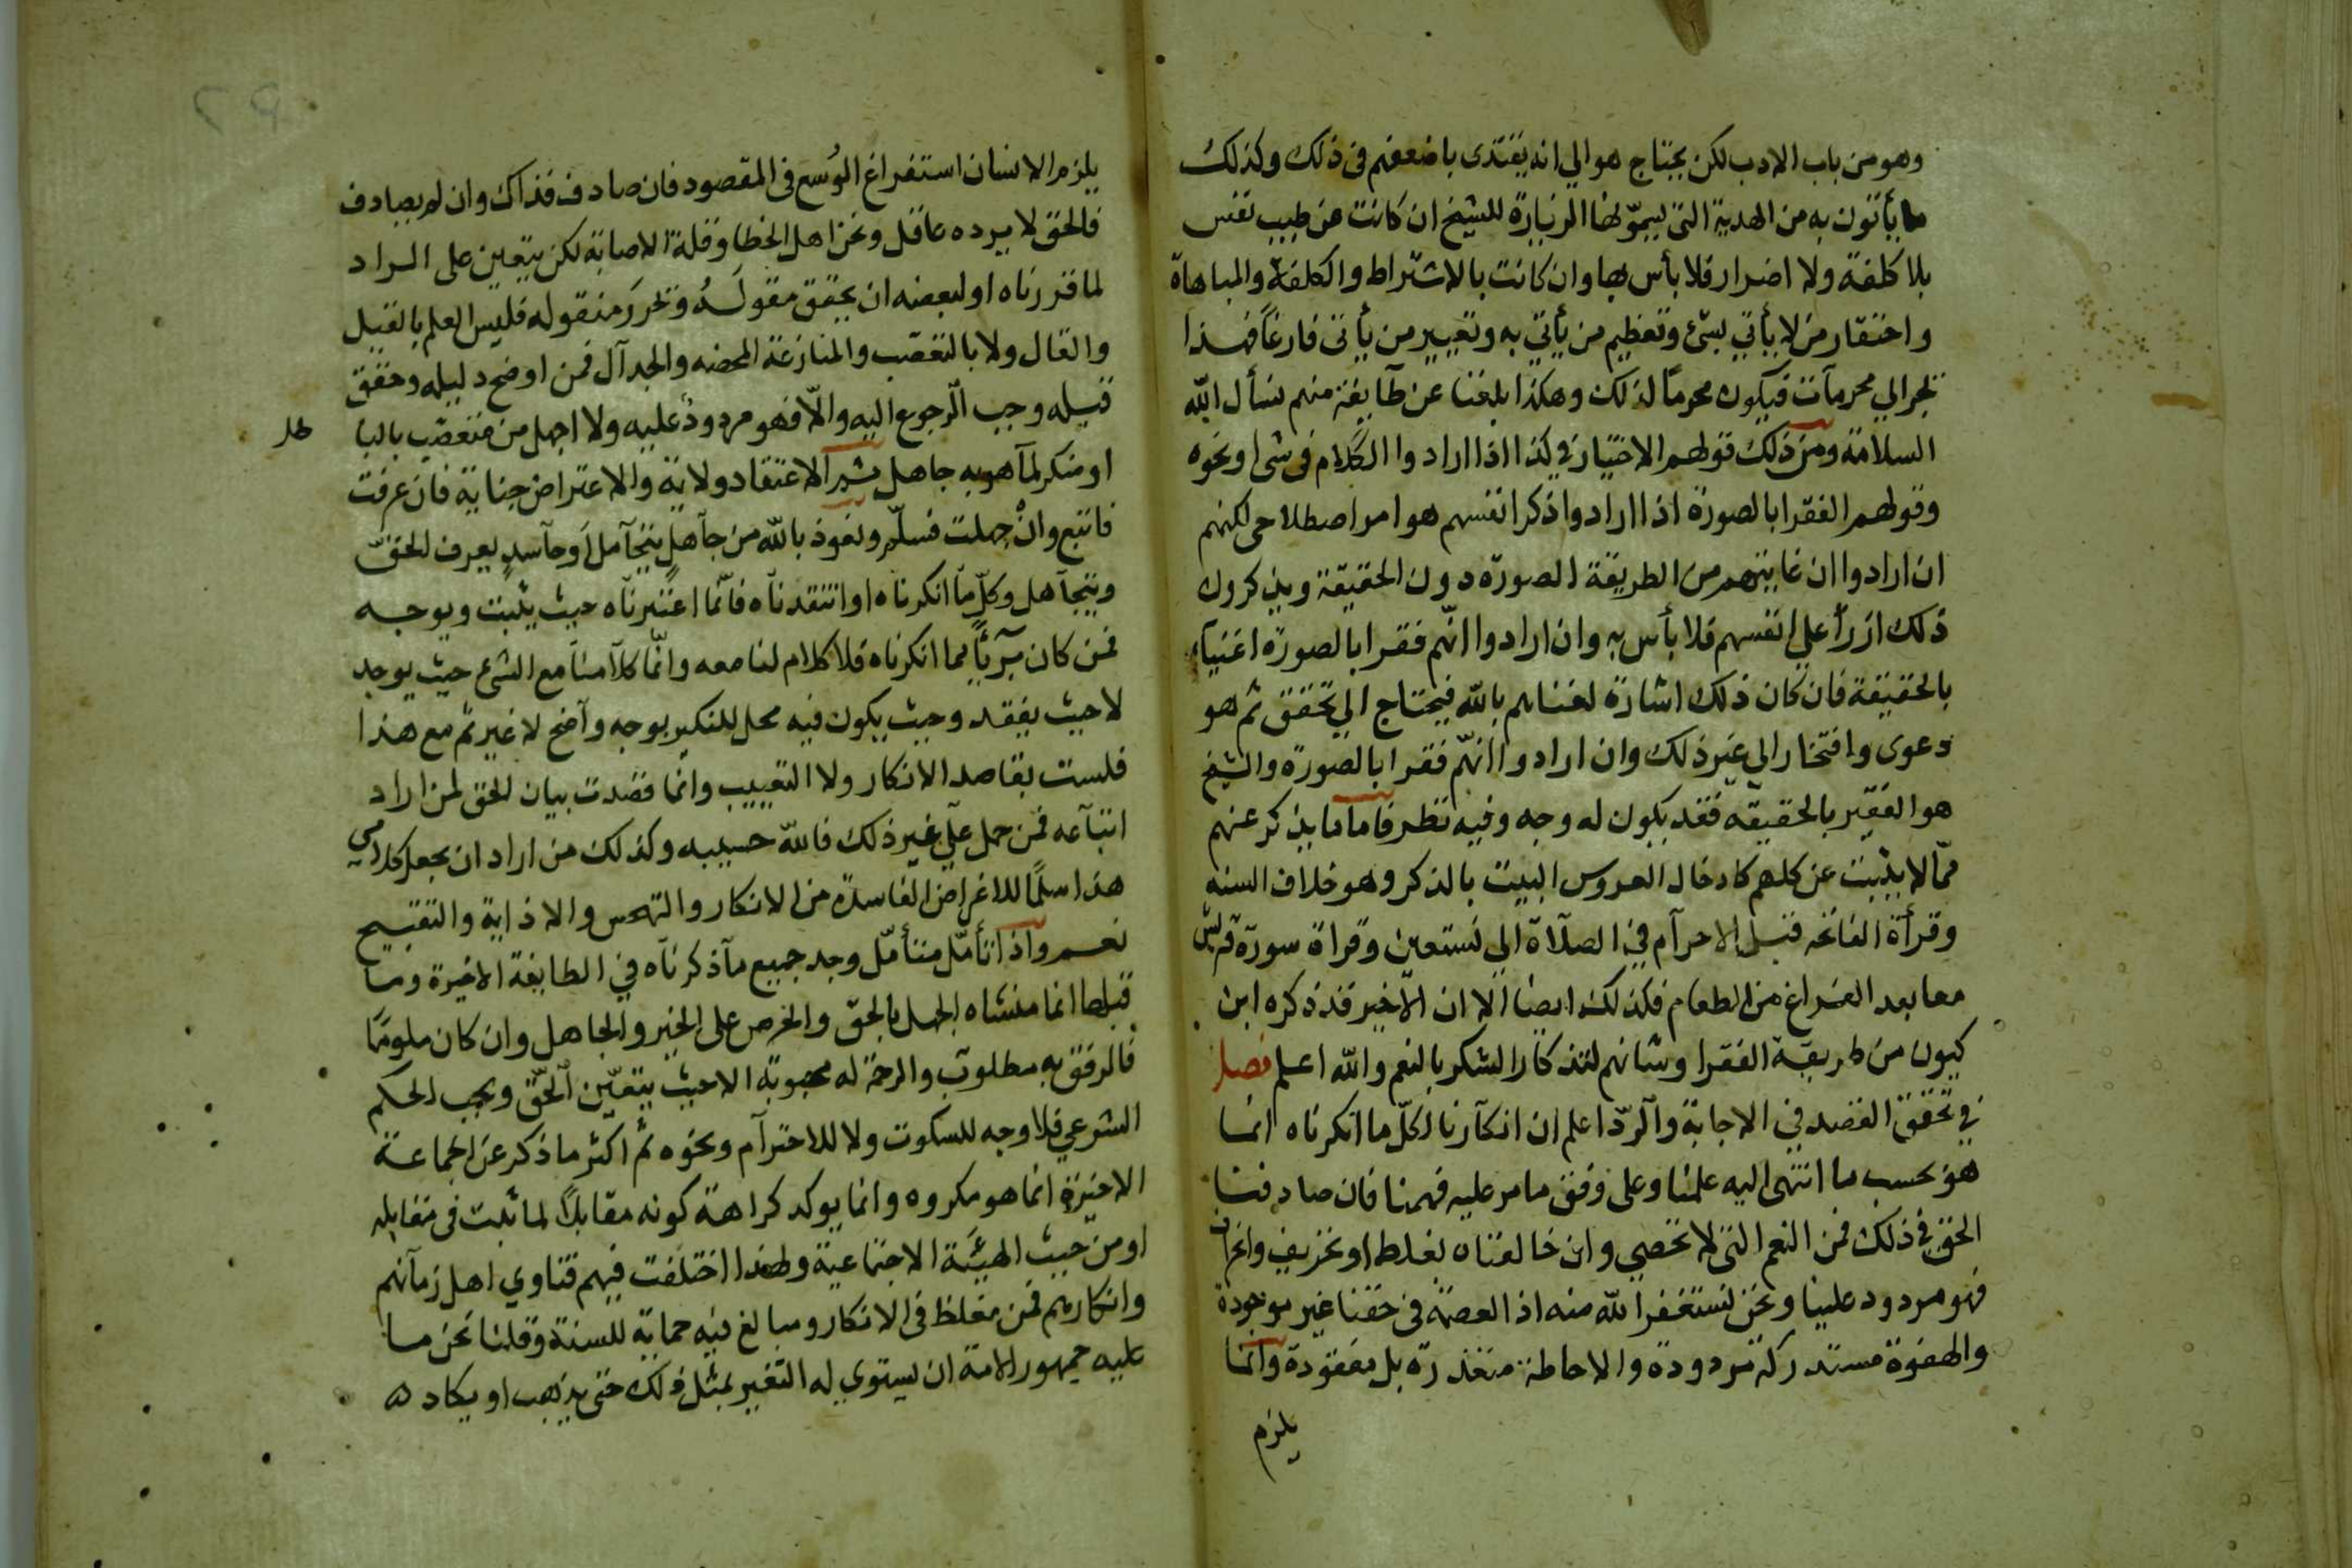 وهو من باب الادب لكن يحتاج هوالي انه يقتدى باضعفهم فى ذلك وكذلك
ما يأتون به من الهدية التى يسموّنها الزيارة للشيخ ان كانت عن طيب نفس
بلا كلفة ولا اضرار فلا بأس بها وان كانت بالاشتراط والكلفة والمباهاة
واحتقار من لا يأتي بشئ وتعظيم من يأتي به وتعيير من يأتى فارغاً فهذا
يجر الي محرمات فيكون محرماً لذلك وهكذا بلغنا عن طآيفة منهم نسأل الله
السلامة ومن ذلك قولهم الاختيار في كذا اذا ارادوا الكلام فى شى او نحوه
وقولهم الفقرا بالصورة اذا ارادوا ذكر انفسهم هو امر اصطلاحى لكنهم
ان ارادوا ان غايتهم من الطريقة الصورة دون الحقيقة ويذكرون
ذلك ازرأ علي انفسهم فلا بأس به وان ارادوا انهم فقرا بالصورة اغنياء
بالحقيقة فان كان ذلك اشارة لغناهم بالله فيحتاج الي تحقق ثم هو
دعوى وافتخار الي غير ذلك وان ارادوا انهم فقرا بالصورة والشيخ
هو الفقير بالحقيقة فقد يكون له وجه وفيه نظر فاما ما يذكر عنهم
مما لا يثبت عن كلهم كادخال العروس البيت بالذكر وهو خلاف السنه
وقرأة الفاتحه قبل الاحرام في الصلاة الي نستعين وقراة سورة قريش
معا بعد الفراغ من الطعام فكذلك ايضا الا ان الاخير قد ذكره ابن
كيون من طريقة الفقرا وشانهم لتذكار الشكر بالنعم والله اعلم فصل
في تحقق القصد في الاجابة والرد اعلم ان انكارنا لكل ما انكرناه انما
هو بحسب ما انتهى اليه علمنا وعلى وفق ما مر عليه فهمنا فان صادفنا
الحق في ذلك فمن النعم التى لا تحصي وان خالفناه لغلط او تحريف واغراب
فهو مردود علينا ونحن نستغفر الله منه اذ العصمة فى حقنا غير موجودة
والهفوة مستدركة مردودة والاحاطة متعذرة بل مفقودة وانما
يلزم
يلزم الانسان استفراغ الوُسع فى المقصود فان صادف فذاك وان لم يصادف
فالحق لا يرده عاقل ونحن اهل الخطا وقلة الاصابة لكن يتعين على الراد
لما قررناه او لبعضه ان يحقق مقولَهُ وتحرر منقوله فليس العلم بالقيل
والقال ولا بالتعصّب والمنازعة المحضه والجدآل فمن اوضح دليله وحقق
قيله وجب الرجوع اليه والا فهو مردودٌ عليه ولا اجهل من متعصّب بالبا
طل
او منكر لما هو به جاهل شر الاعتقاد ولاية والاعتراض جناية فان عرفت
فاتبع وان جهلت فسلّم ونعوذ بالله من جآهل يتحآمل او حآسدٍ يعرف الحق
ويتجآهل وكل ما انكرناه او انتقدناه فانما اعتبرناه حيث يثبت ويوجه
فمن كان بريئاً مما انكرناه فلا كلام لنا معه وانما كلامنا مع الشئ حيث يوجد
لا حيث يفقد وحيث يكون فيه محل للنكير بوجه وآضح لا غير ثم مع هذا
فلست بقاصد الانكار ولا التعييب وانما قصدت بيان الحق لمن اراد
اتباعه فمن حمل علي غير ذلك فالله حسيبه وكذلك من اراد ان يجعل كلامي
هذا سلماً للاغراض الفاسدة من الانكار والتهجس والاذاية والتقبيح
نعم واذا تأمّل متأمّل وجد جميع مآذكرناه في الطايفة الاخيرة وما
قبلها انما منشاه الجهل بالحق والحرص على الخير والجاهل وان كان ملوماً
فالرفق به مطلوب والرحمة له محبوبة الا حيث يتعيّن الحق ويجب الحكم
الشرعي فلا وجه للسكوت ولا للاحترآم ونحوه ثم اكثر ما ذكر عن الجماعة
الاخيرة انما هو مكروه وانما يوكد كراهة كونه مقابلاً لما ثبت فى مقابله
او من حيث الهيئَة الاجتماعية ولهذا اختلفت فيهم فتاوي اهل زمآنهم
وانكارهم فمن مغلظ فى الانكار ومبالغ فيه حماية للسنة وقلنا نحن ما
عليه جمهور الامة ان يستوي له التغير بمثل ذلك حتى يذهب او يكاد